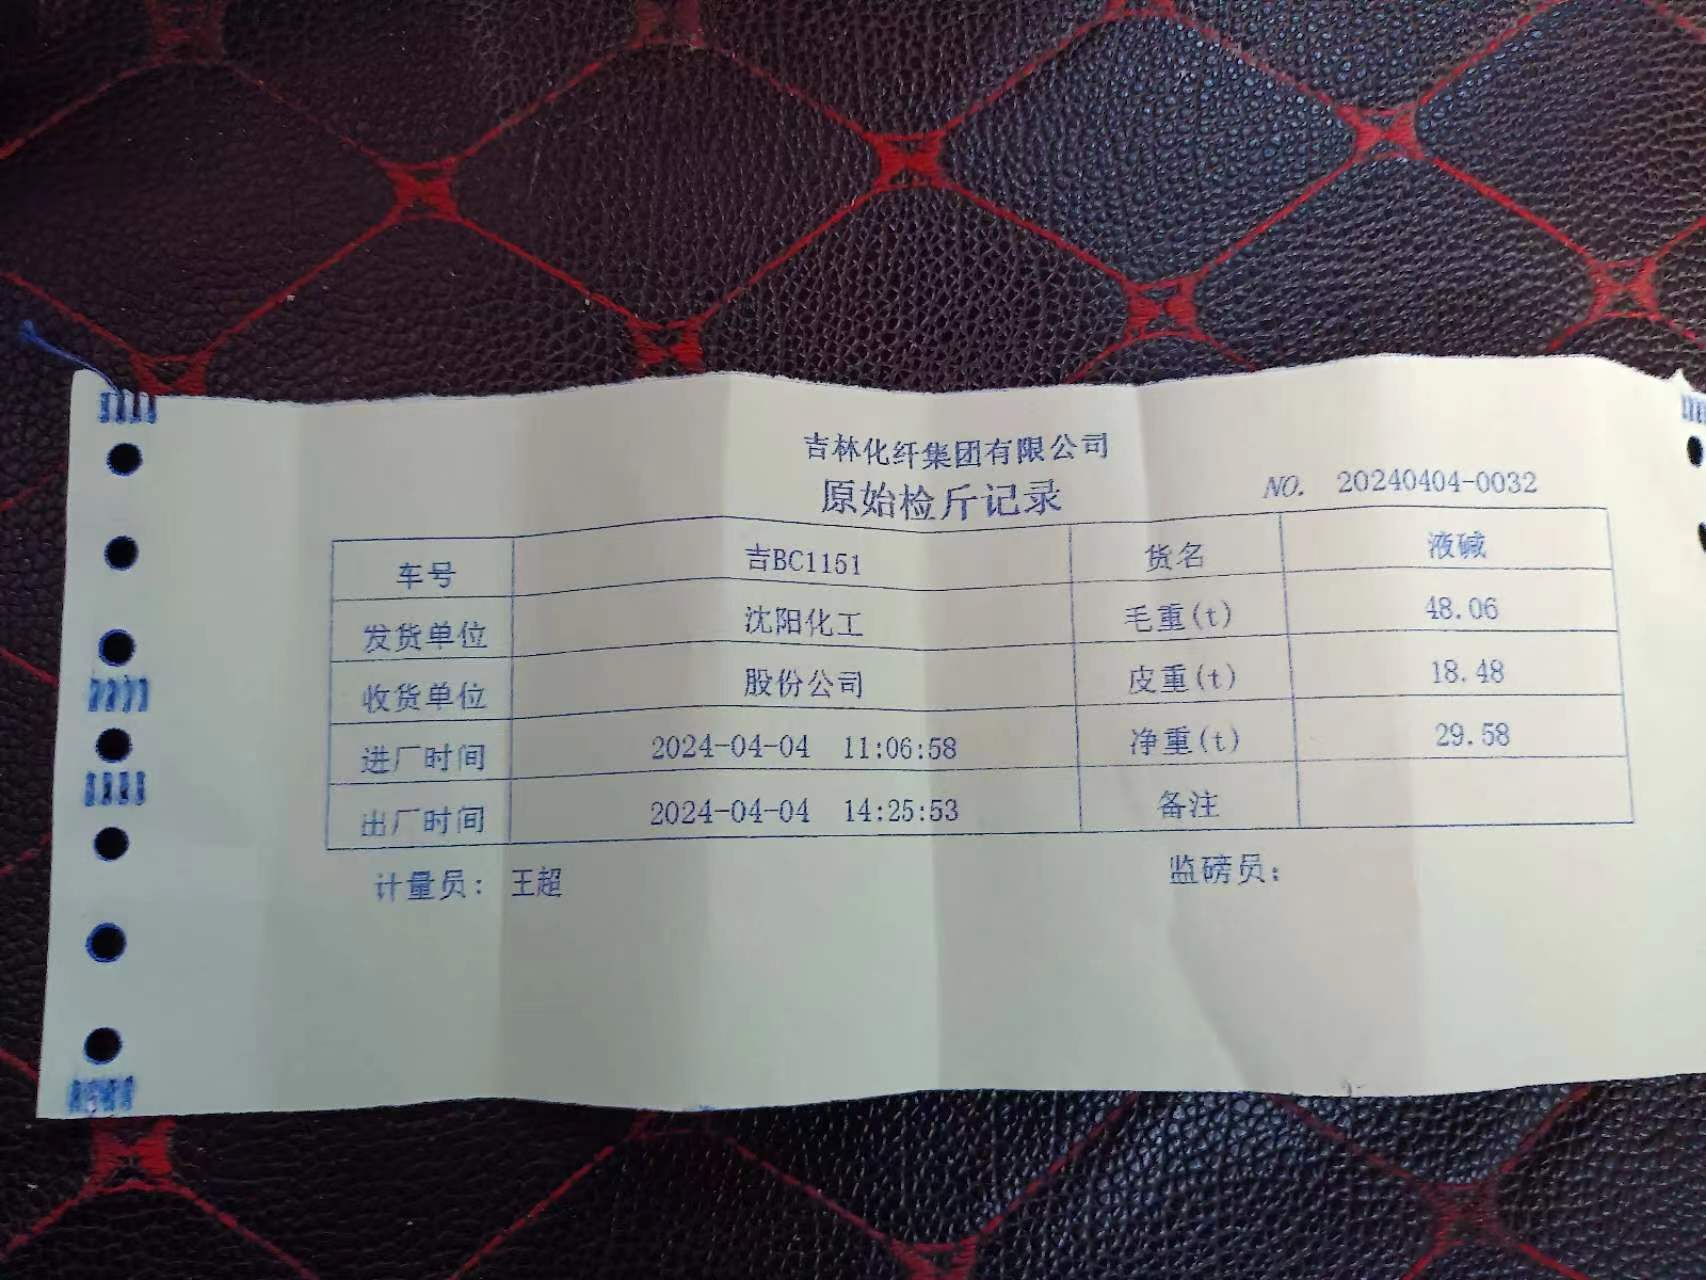 吉林化纤集团有限公司
原始检斤记录
NO. 20240404-0032
车号 吉BC1151 货名 液碱
发货单位 沈阳化工 毛重(t) 48.06
收货单位 股份公司 皮重(t) 18.48
进厂时间 2024-04-04 11:06:58 净重(t) 29.58
出厂时间 2024-04-04 14:25:53 备注
计量员: 王超 监磅员: